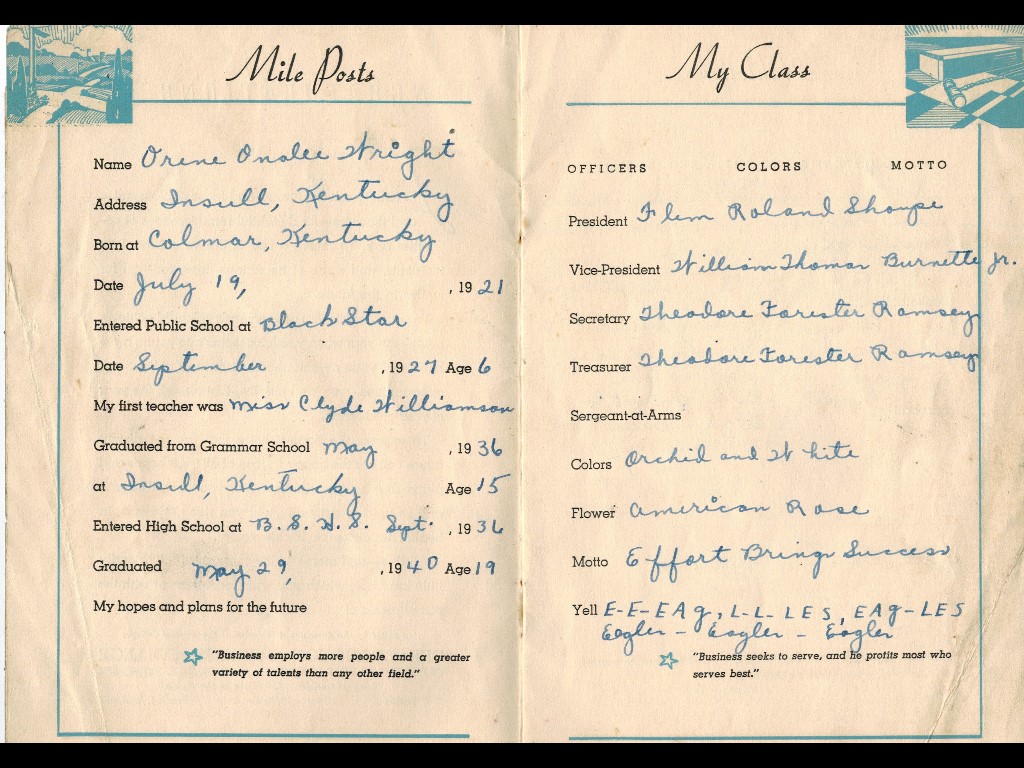 Mile Posts
Name Orene Onalee Wright
Address Insull, Kentucky
Born at Colmar, Kentucky
Date July 19, , 1921
Entered Public School at Black Star
Date September , 1927 Age 6
My first teacher was Miss Clyde Williamson
Graduated from Grammar School May , 1936
at Insull, Kentucky Age 15
Entered High School at B. S. H. S. Sept. , 1936
Graduated May 29, , 1940 Age 19
My hopes and plans for the future
"Business employs more people and a greater
variety of talents than any other field."
My Class
OFFICERS COLORS MOTTO
President Flem Roland Shoupe
Vice-President William Thomas Burnette Jr.
Secretary Theodore Forester Ramsey
Treasurer Theodore Forester Ramsey
Sergeant-at-Arms
Colors Orchid and White
Flower American Rose
Motto Effort Brings Success
Yell E-E-EAg, L-L-LES, EAg-LES
Eagles - Eagles - Eagles
"Business seeks to serve, and he profits most who
serves best."